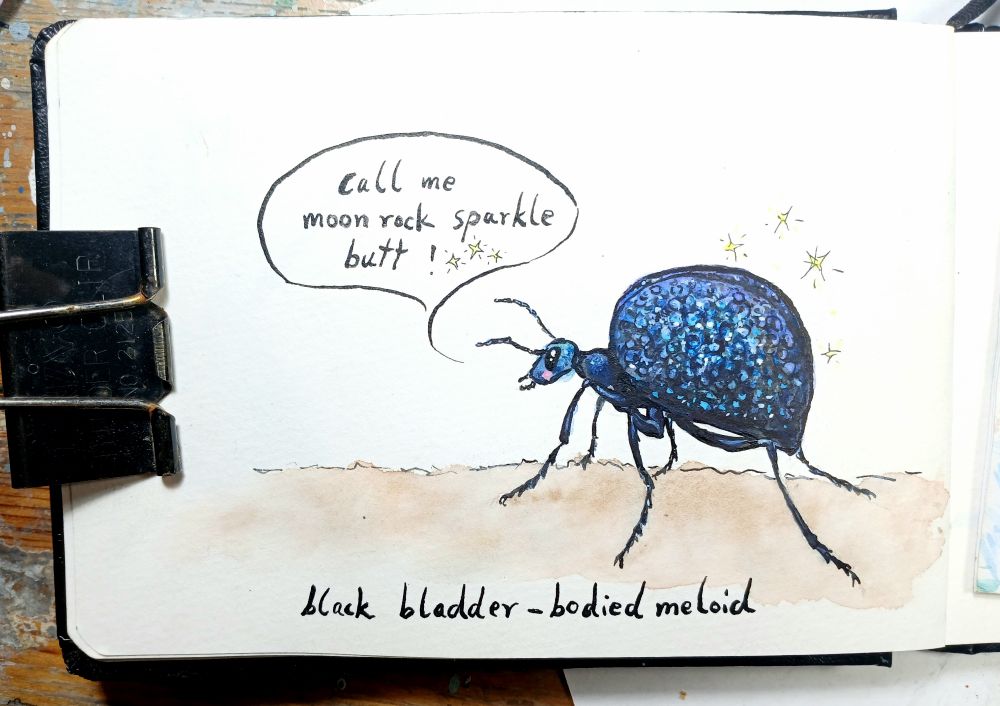 call me
moon rock sparkle
butt !
black bladder-bodied meloid